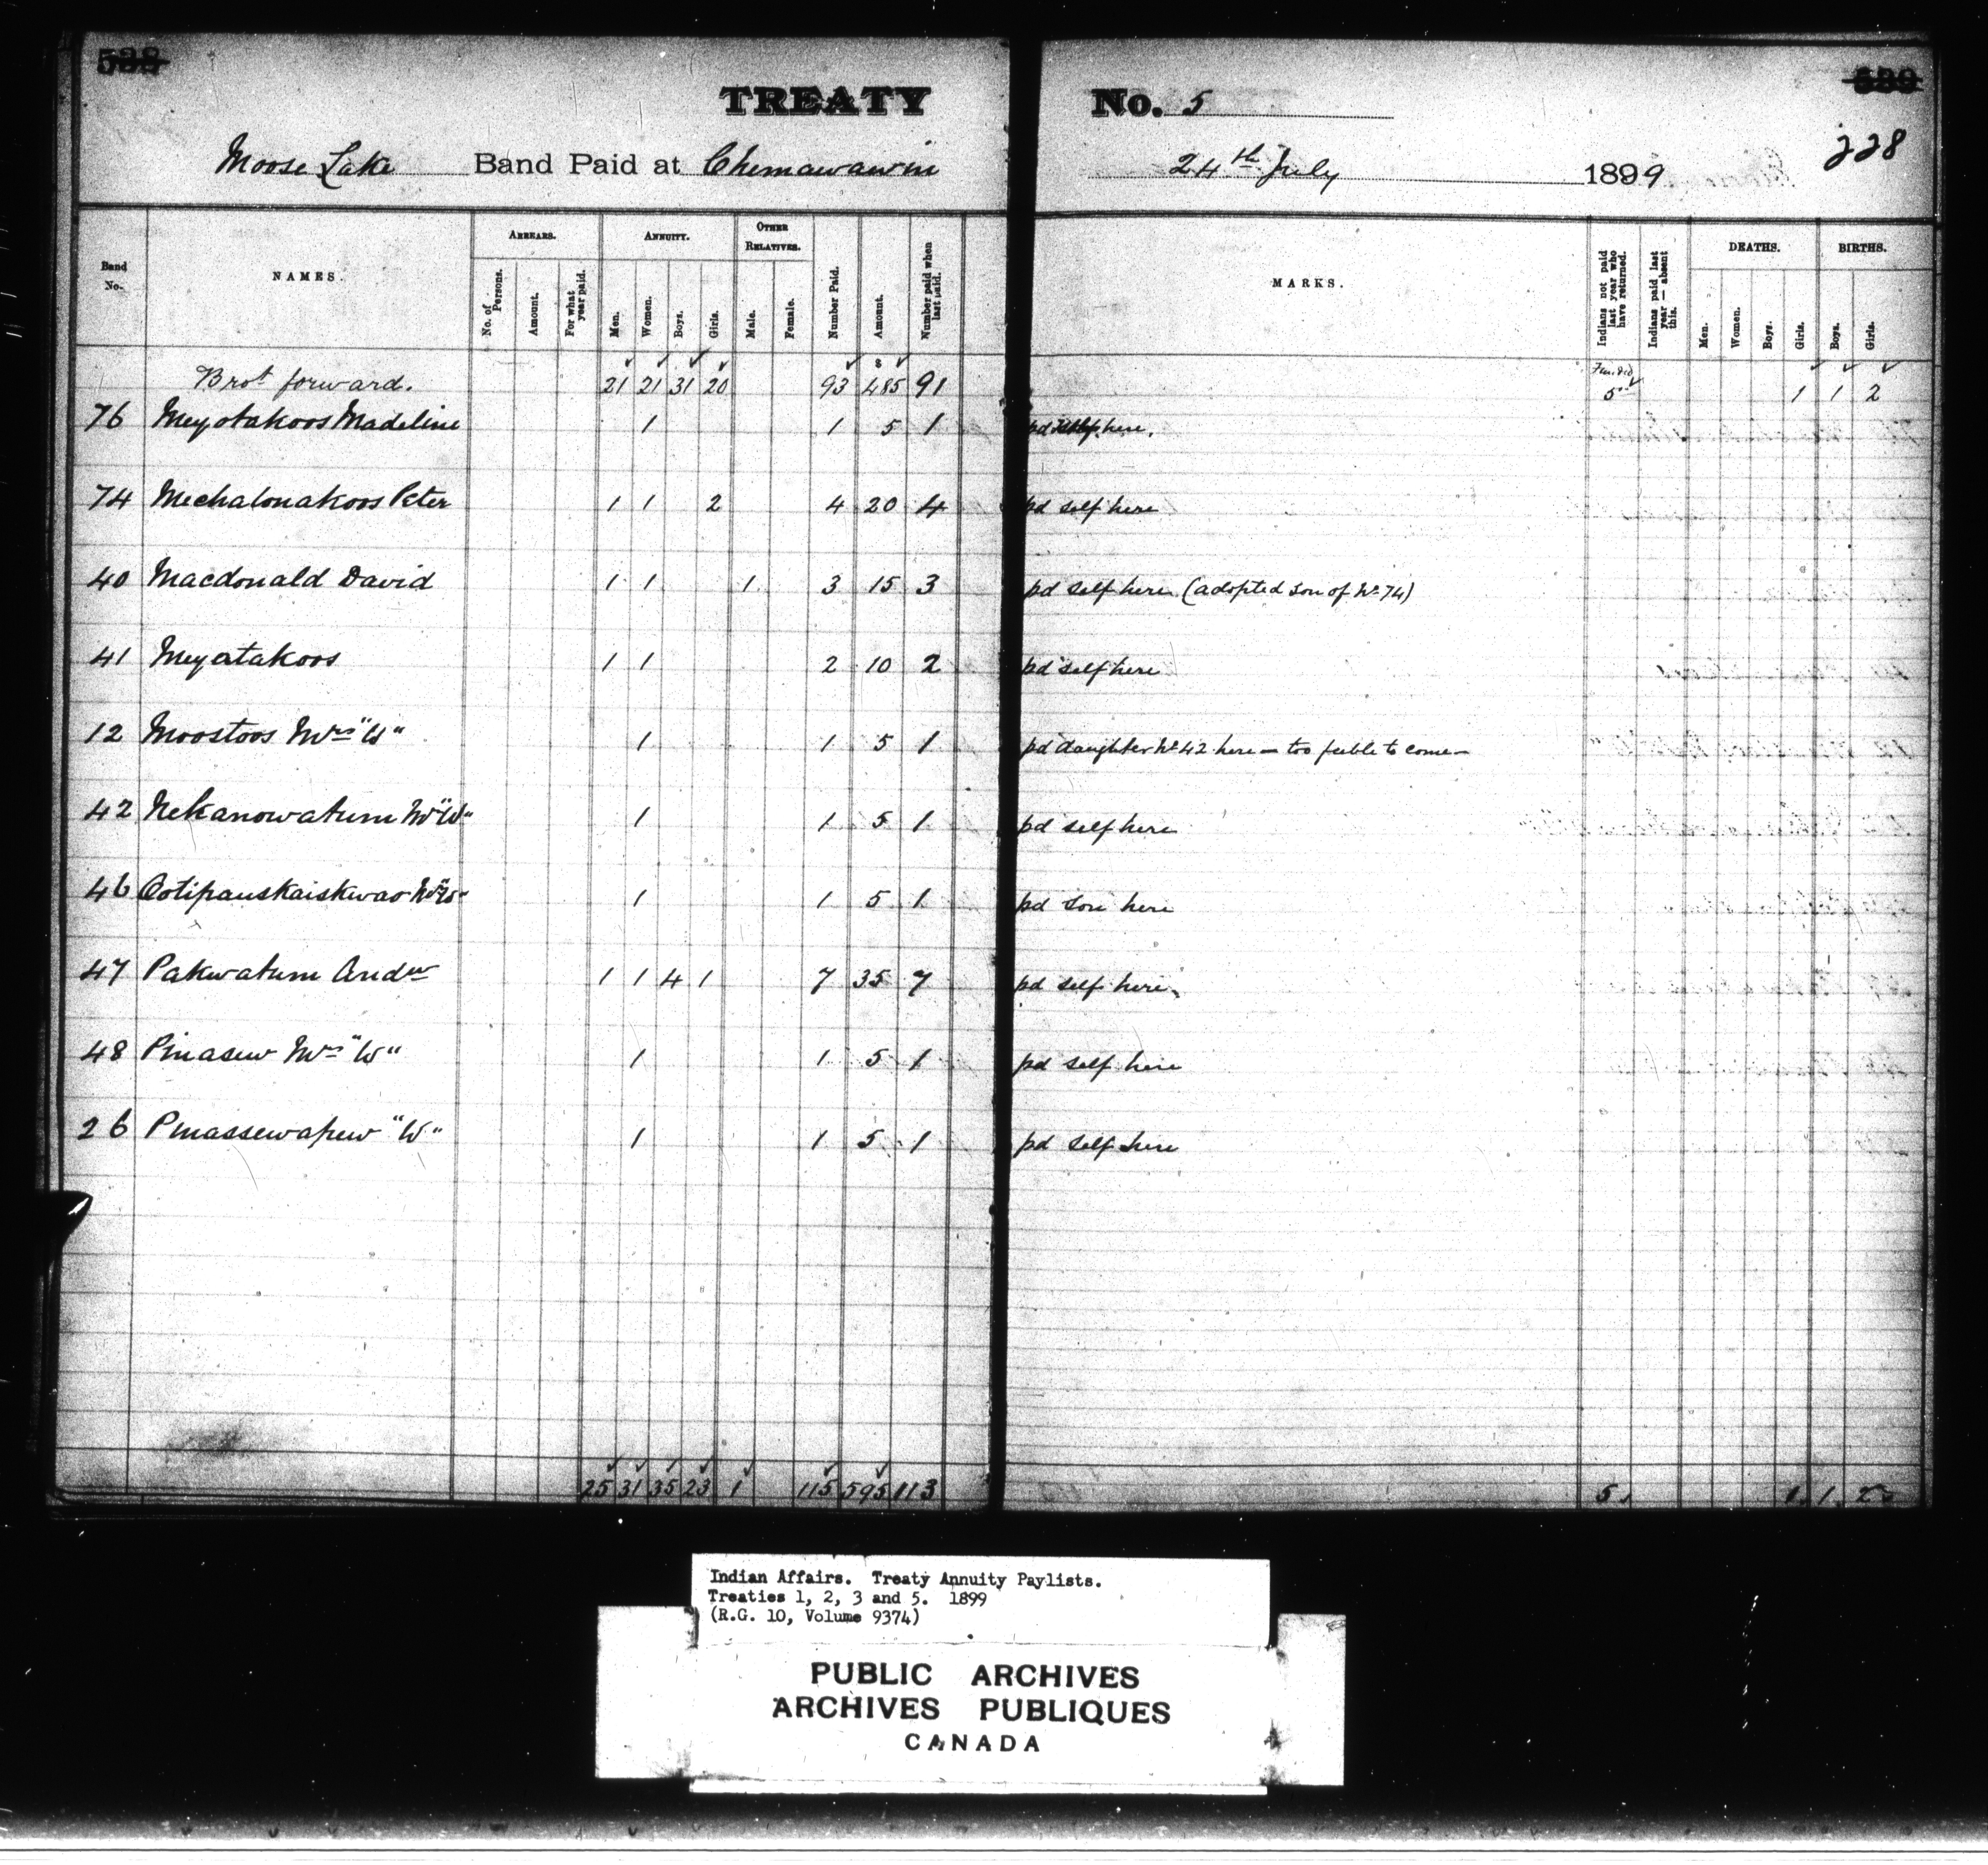 538
539
TREATY No. 5
228
Moose Lake Band Paid at Chemawawin 24th July 1899
Band No. NAMES. ARREARS. No. of Persons. Amount. For what year paid. ANNUITY. Men. Women. Boys. Girls. OTHER RELATIVES. Male. Female. Number Paid. Amount. Number paid when last paid. MARKS. Indians not paid last year who have returned. Indians paid last year — absent this. DEATHS. Men. Women. Boys. Girls. BIRTHS. Boys. Girls.
Brot forward. 21 21 31 20 93 485 91 5 1 1 2
76 Meyotakoos Madeline 1 1 5 1 pd here.
74 Mechalonakoos Peter 1 1 2 4 20 4 pd self here
40 Macdonald David 1 1 1 3 15 3 pd self here (adopted son of No 74)
41 Meyatakoos 1 1 2 10 2 pd self here
12 Moostoos Mrs "W" 1 1 5 1 pd daughter No 42 here — too feeble to come —
42 Nekanowatum Mrs "W" 1 1 5 1 pd self here
46 Ootipauskaiskwao Mrs "W" 1 1 5 1 pd son here
47 Pakwatum Andw 1 1 4 1 7 35 7 pd self here
48 Pinasew Mrs "W" 1 1 5 1 pd self here
26 Pinassewapew "W" 1 1 5 1 pd self here
25 31 35 23 1 115 595 113 5 1 1 2
Indian Affairs. Treaty Annuity Paylists.
Treaties 1, 2, 3 and 5. 1899
(R.G. 10, Volume 9374)
PUBLIC ARCHIVES
ARCHIVES PUBLIQUES
CANADA